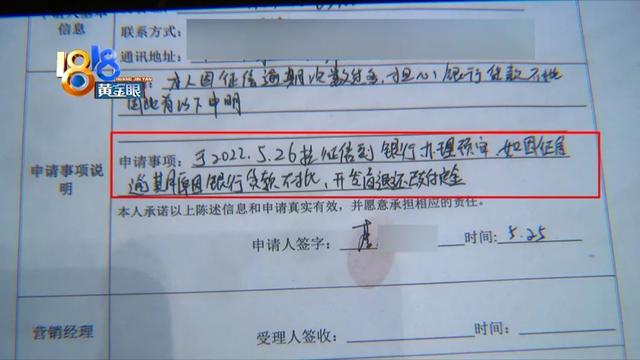 申请人基本
信息
联系方式：
通讯地址：
1818
黄金眼
本人因征信逾期次数过多，担心银行贷款不批
因此有以下申明
申请事项说
明
申请事项：于2022.5.26拉征信到银行办理预审，如因征信
逾期原因银行贷款不批，开发商退还已付定金
本人承诺以上陈述信息和申请真实有效，并愿意承担相应的责任。
申请人签字：
时间：5.25
营销经理
受理人签收：
时间：